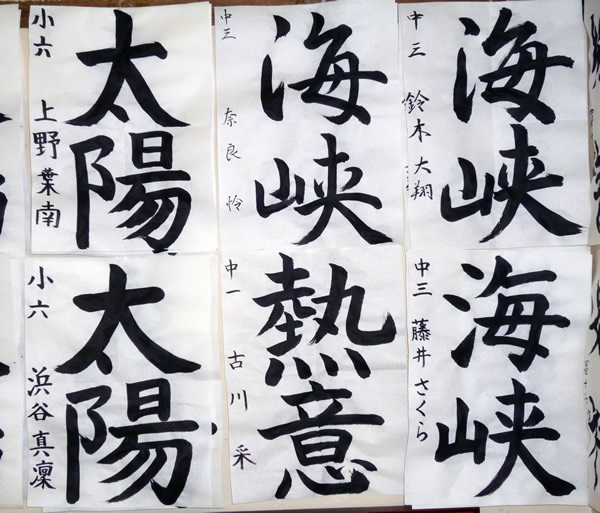 太陽
小六 上野葉南
海峡
中三 奈良怜
海峡
中三 鈴木大翔
太陽
小六 浜谷真凜
熱意
中一 古川采
海峡
中三 藤井さくら